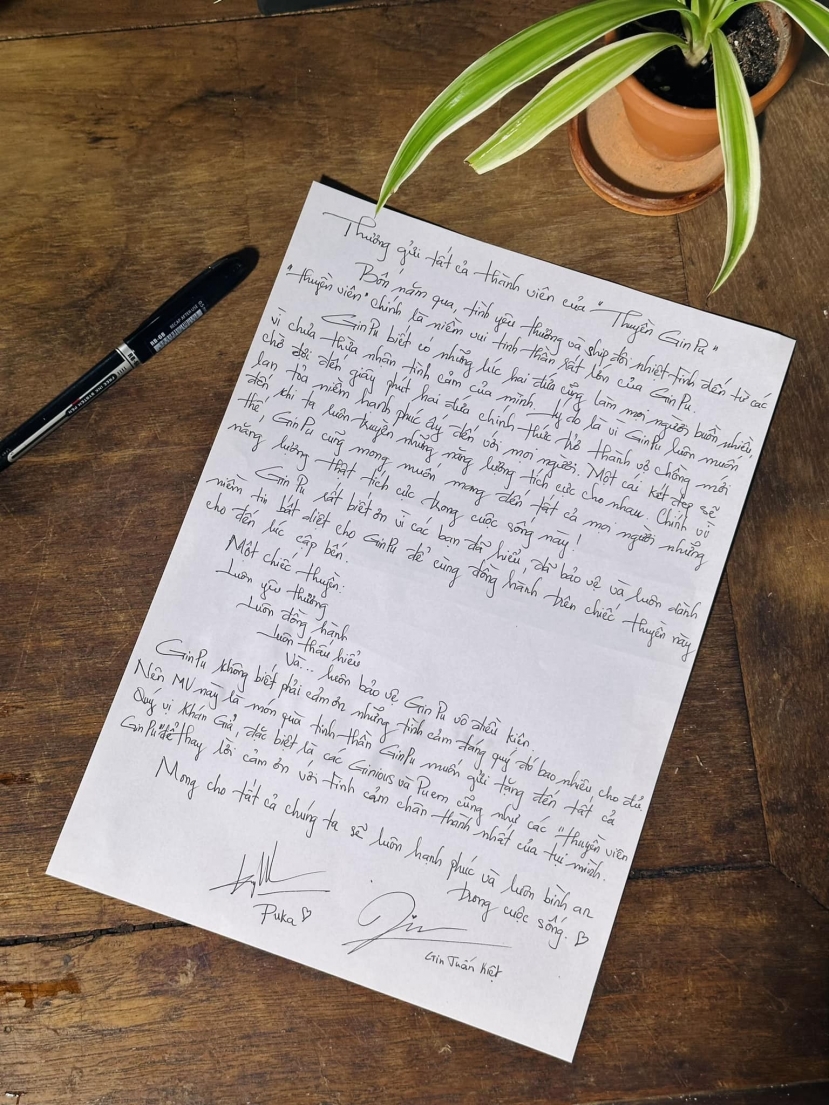 Thương gửi tất cả thành viên của "Thuyền GinPu"
Bốn năm qua, tình yêu thương và ship đôi nhiệt tình đến từ các
"thuyền viên" chính là niềm vui tinh thần rất lớn của GinPu.
GinPu biết có những lúc hai đứa cũng làm mọi người buồn nhiều,
vì chưa thừa nhận tình cảm của mình, lý do là vì GinPu luôn muốn
chờ đợi đến giây phút hai đứa chính thức trở thành vợ chồng mới
lan toả niềm hạnh phúc ấy đến với mọi người. Một cái kết đẹp sẽ
đến khi ta luôn truyền những năng lượng tích cực cho nhau. Chính vì
thế, GinPu cũng mong muốn mang đến tất cả mọi người những
năng lượng thật tích cực trong cuộc sống này!
GinPu rất biết ơn vì các bạn đã hiểu, đã bảo vệ và luôn dành
niềm tin bất diệt cho GinPu để cùng đồng hành trên chiếc thuyền này
cho đến lúc cập bến.
Một chiếc thuyền:
Luôn yêu thương
Luôn đồng hành
Luôn thấu hiểu
Và... luôn bảo vệ GinPu vô điều kiện.
GinPu không biết phải cảm ơn những tình cảm đáng quý đó bao nhiêu cho đủ
Nên MV này là món quà tinh thần GinPu muốn gửi tặng đến tất cả
Quý vị Khán Giả, đặc biệt là các Ginious và Puem cũng như các "thuyền viên
GinPu" để thay lời cảm ơn với tình cảm chân thành nhất của tụi mình.
Mong cho tất cả chúng ta sẽ luôn hạnh phúc và luôn bình an
trong cuộc sống.
Puka
Gin Tuấn Kiệt